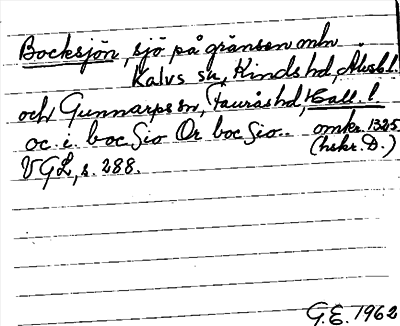 Bocksjön, sjö på gränsen mln
Kalvs sn, Kinds hd, Älvsb.l.
och Gunnarps sn, Faurås hd, Hall. l.
oc .i. boc sio Or boc sio.. omkr. 1325
(hskr. D.)
VGL, s. 288.
G.E. 1962